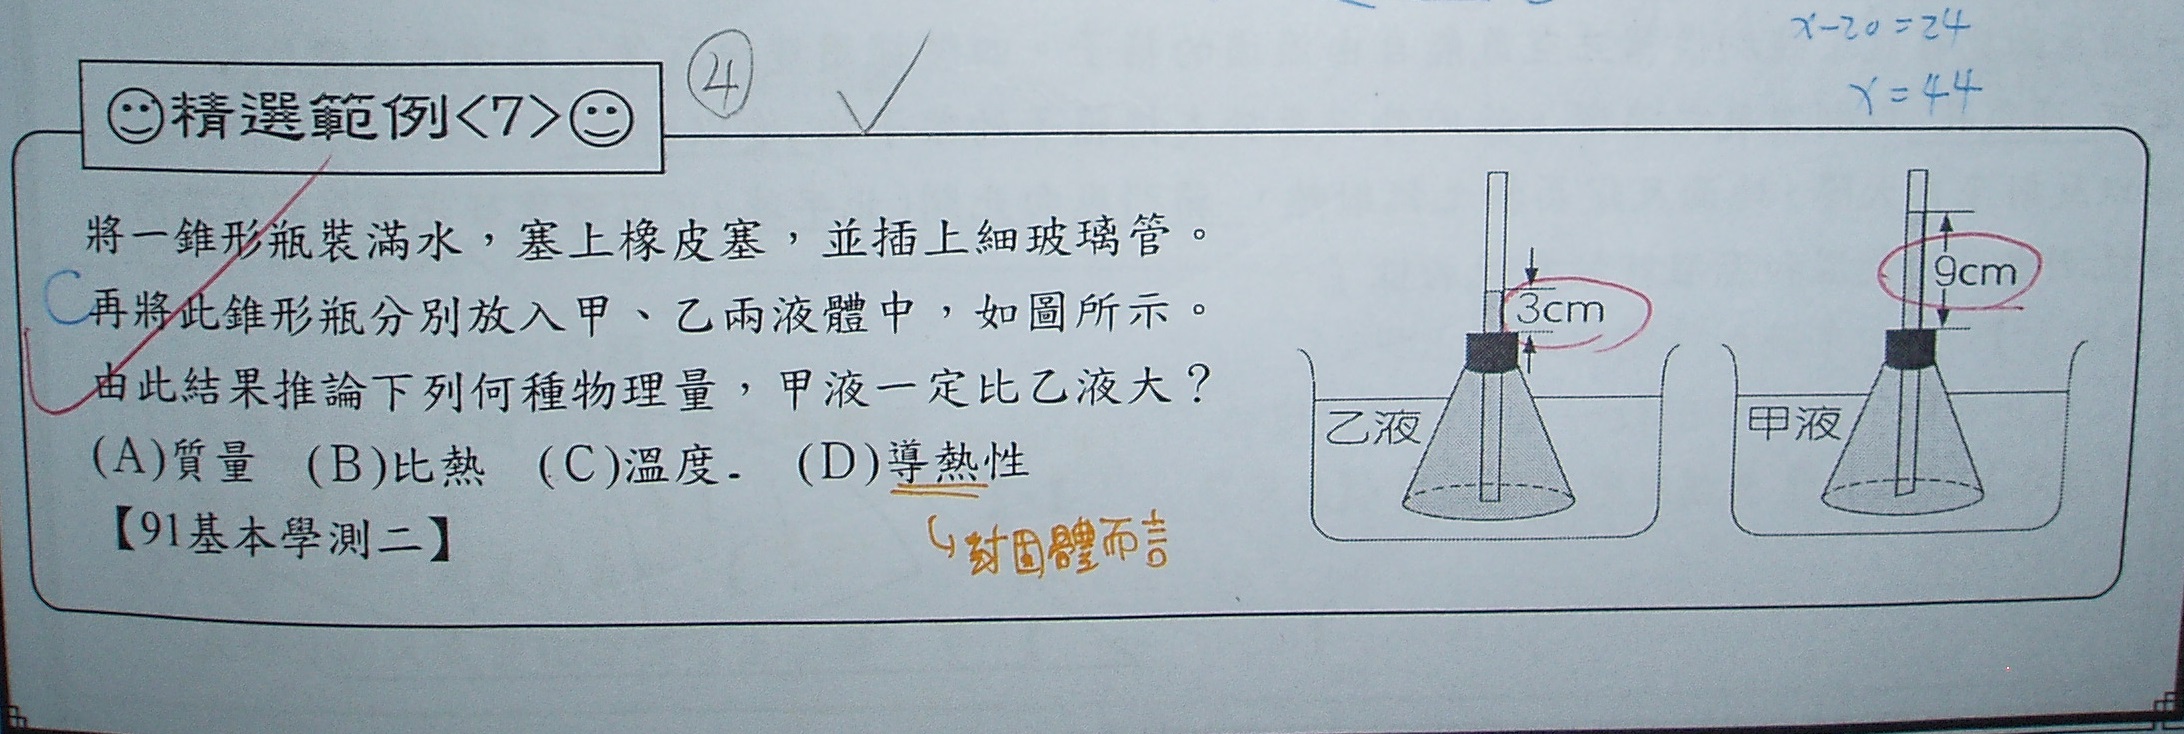 x-20=24
x=44
④
精選範例<7>
將一錐形瓶裝滿水，塞上橡皮塞，並插上細玻璃管。
C再將此錐形瓶分別放入甲、乙兩液體中，如圖所示。
由此結果推論下列何種物理量，甲液一定比乙液大？
(A)質量 (B)比熱 (C)溫度. (D)導熱性
【91基本學測二】
對固體而言
3cm
乙液
9cm
甲液